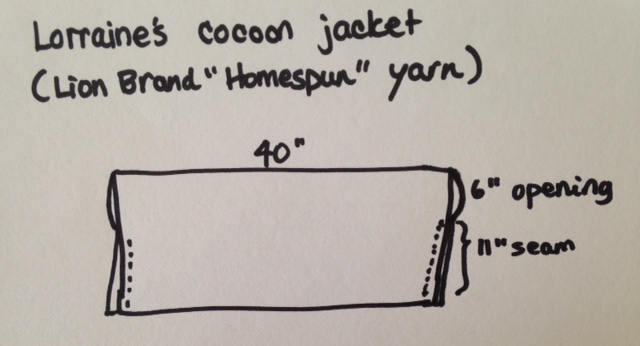 Lorraine's cocoon jacket
(Lion Brand "Homespun" yarn)
40"
6" opening
11" seam